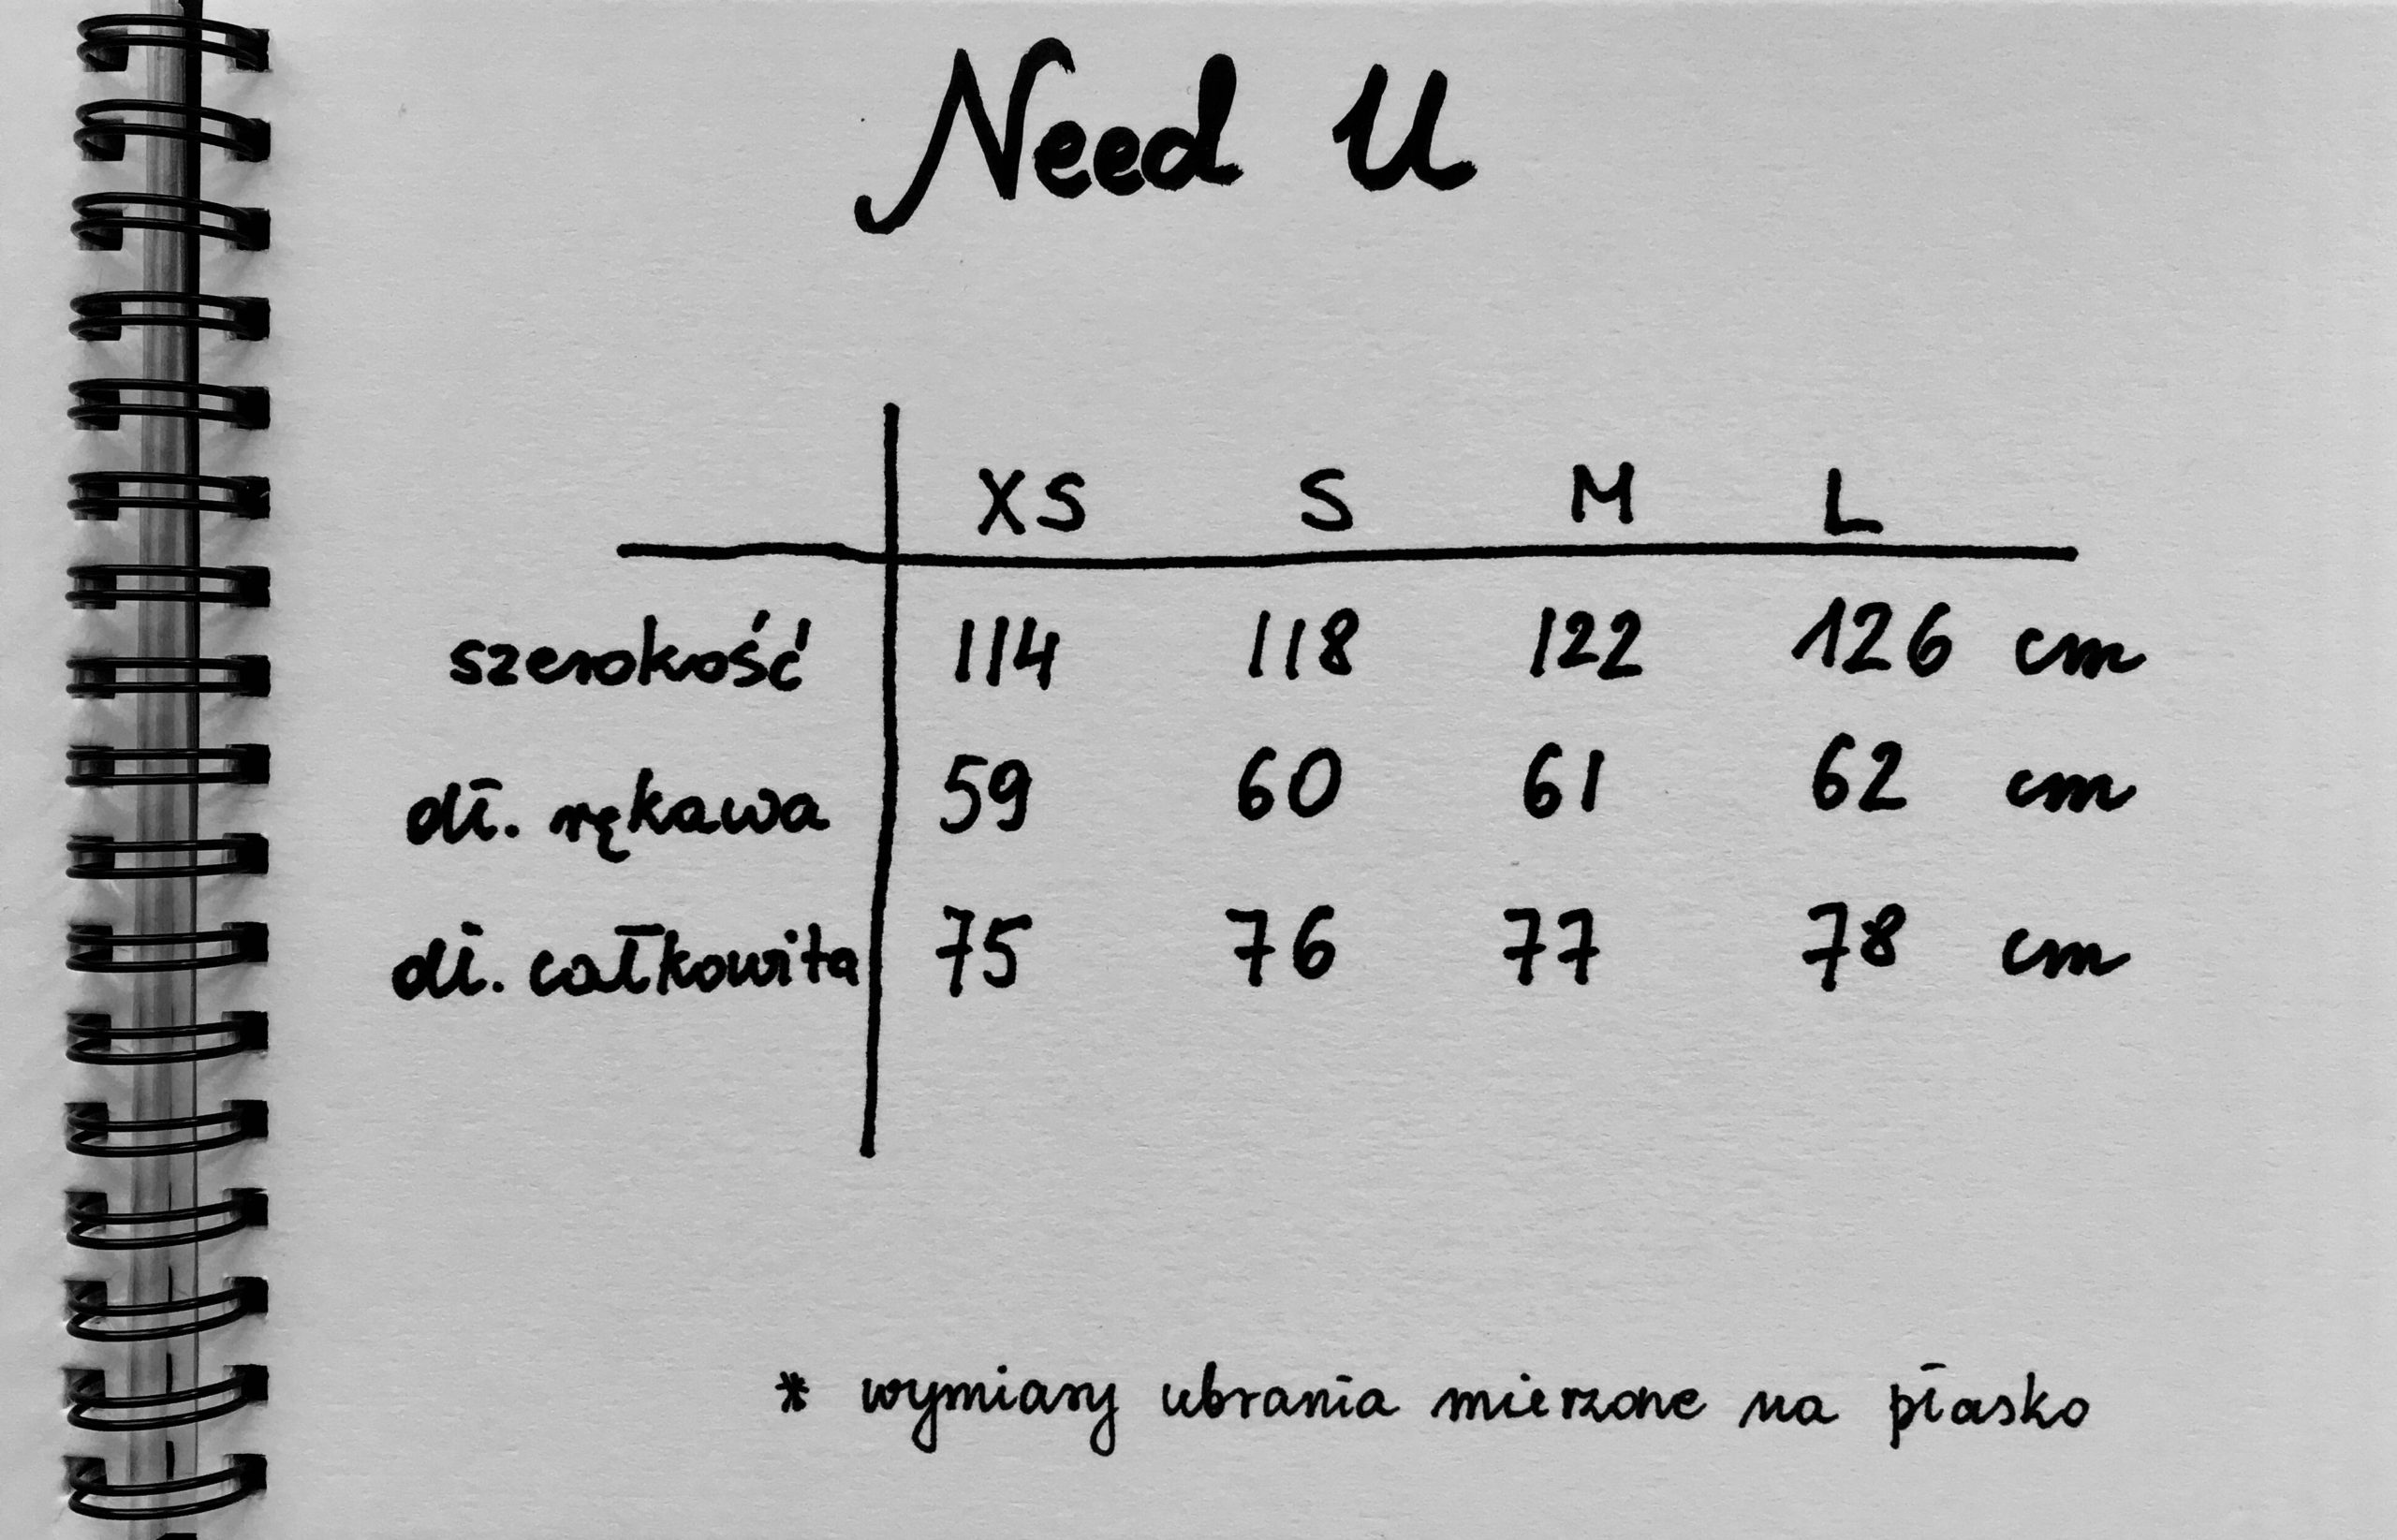 Need U
XS S M L
szerokość 114 118 122 126 cm
dł. rękawa 59 60 61 62 cm
dł. całkowita 75 76 77 78 cm
* wymiary ubrania mierzone na płasko